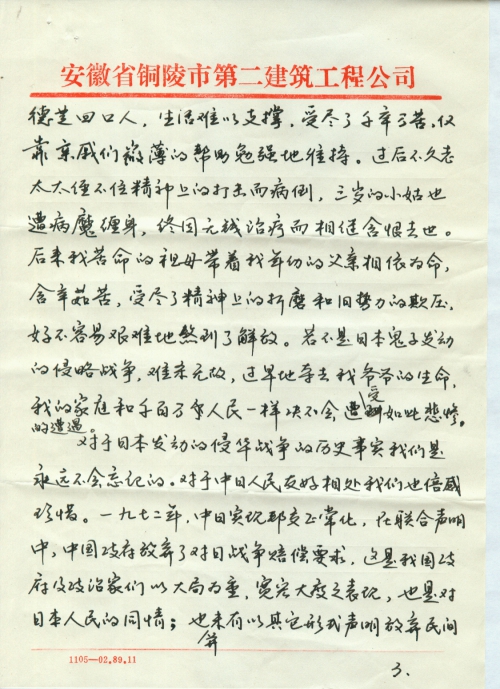 安徽省铜陵市第二建筑工程公司
德芝四口人，生活难以支撑，受尽了千辛万苦，仅
靠亲戚们微薄的帮助勉强地维持。过后不久老
太太经不住精神上的打击而病倒，三岁的小姑也
遭病魔缠身，终因无钱治疗而相继含恨去世。
后来我苦命的祖母带着我年幼的父亲相依为命，
含辛茹苦，受尽了精神上的折磨和旧势力的欺压，
好不容易艰难地熬到了解放。若不是日本鬼子发动
的侵略战争，难来无故，过早地夺去我爷爷的生命，
我的家庭和千百万乎人民一样决不会遭受如此悲惨
的遭遇。
对于日本发动的侵华战争的历史事实我们是
永远不会忘记的。对于中日人民友好相处我们也倍感
珍惜。一九七二年，中日实现邦交正常化，在联合声明
中，中国政府放弃了对日战争赔偿要求，这是我国政
府及政治家们以大局为重，宽宏大度之表现，也是对
日本人民的同情；并也未有以其它形式声明放弃民间
1105—02.89.11
3.